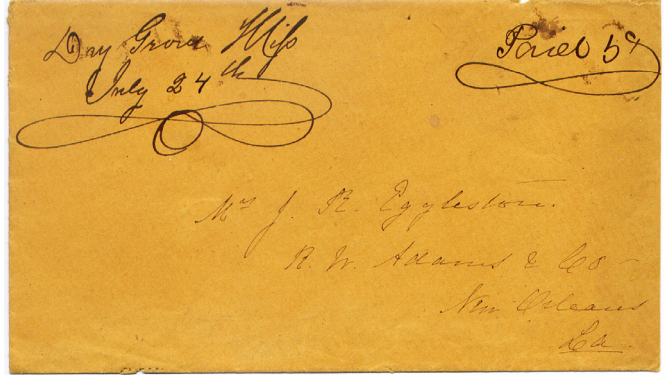 Dry Grove Miss
July 24th
Paid 5c
Mrs J. R. Eggleston.
R. W. Adams & Co
New Orleans
La.